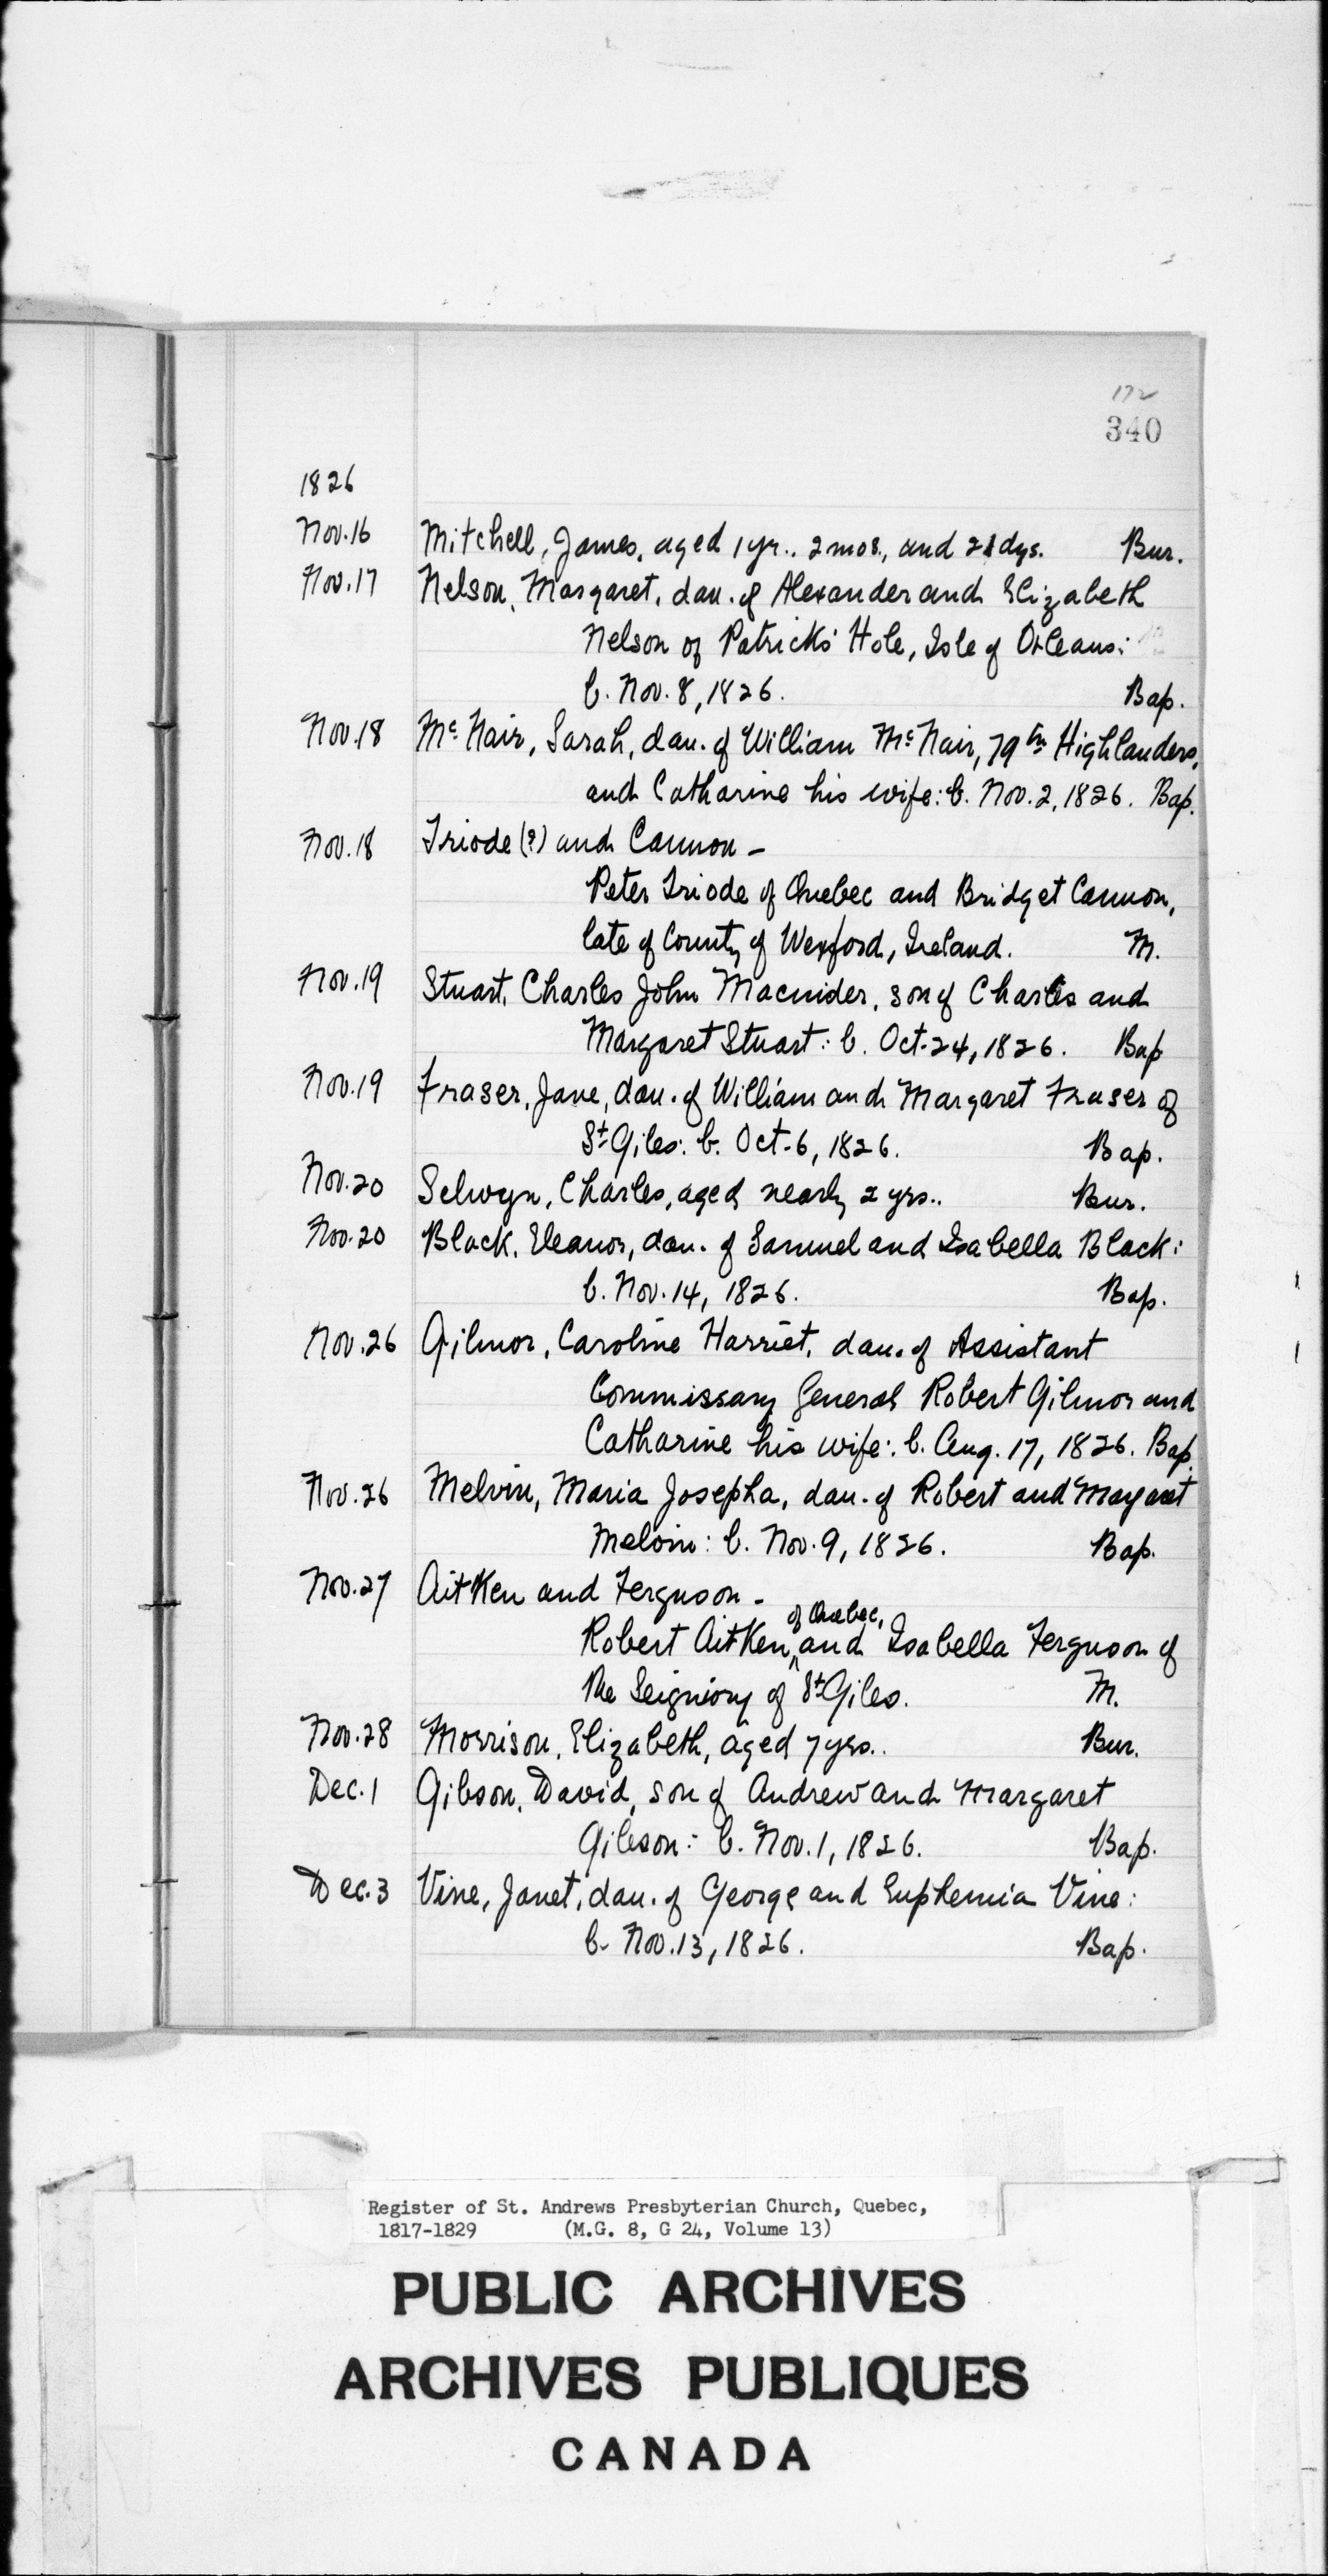 172
340
1826
Nov. 16 Mitchell, James, aged 1 yr., 2 mos., and 21 dys. Bur.
Nov. 17 Nelson, Margaret, dau. of Alexander and Elizabeth
Nelson of Patrick's Hole, Isle of Orleans:
b. Nov. 8, 1826. Bap.
Nov. 18 McNair, Sarah, dau. of William McNair, 79th Highlanders,
and Catharine his wife: b. Nov. 2, 1826. Bap.
Nov. 18 Triode (?) and Cannon -
Peter Triode of Quebec and Bridget Cannon,
late of County of Wexford, Ireland. M.
Nov. 19 Stuart, Charles John Macnider, son of Charles and
Margaret Stuart: b. Oct. 24, 1826. Bap
Nov. 19 Fraser, Jane, dau. of William and Margaret Fraser of
St Giles: b. Oct. 6, 1826. Bap.
Nov. 20 Selwyn, Charles, aged nearly 2 yrs.. Bur.
Nov. 20 Black, Eleanor, dau. of Samuel and Isabella Black:
b. Nov. 14, 1826. Bap.
Nov. 26 Gilmor, Caroline Harriet, dau. of Assistant
Commissary General Robert Gilmor and
Catharine his wife: b. Aug. 17, 1826. Bap.
Nov. 26 Melvin, Maria Josepha, dau. of Robert and Margaret
Melvin: b. Nov. 9, 1826. Bap.
Nov. 27 Aitken and Ferguson -
Robert Aitken, of Quebec, and Isabella Ferguson of
the Seigniory of St Giles. M.
Nov. 28 Morrison, Elizabeth, aged 7 yrs.. Bur.
Dec. 1 Gibson, David, son of Andrew and Margaret
Gibson: b. Nov. 1, 1826. Bap.
Dec. 3 Vine, Janet, dau. of George and Euphemia Vine:
b. Nov. 13, 1826. Bap.
Register of St. Andrews Presbyterian Church, Quebec,
1817-1829 (M.G. 8, G 24, Volume 13)
PUBLIC ARCHIVES
ARCHIVES PUBLIQUES
CANADA